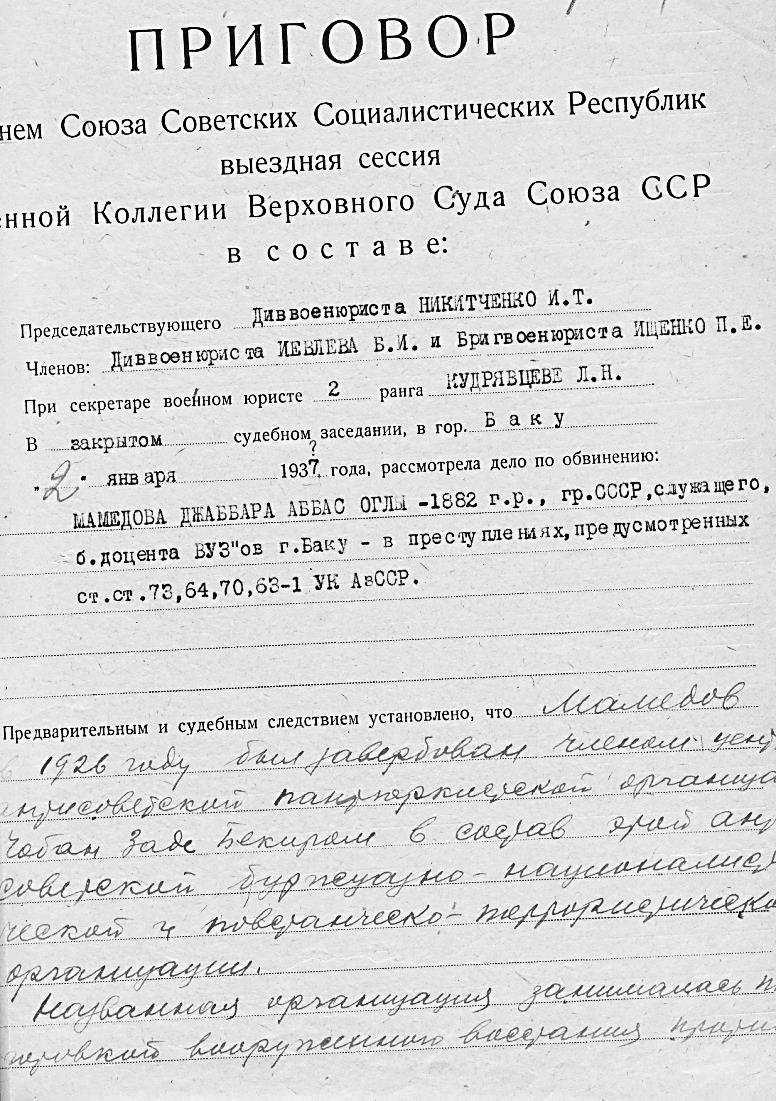 ПРИГОВОР
нем Союза Советских Социалистических Республик
выездная сессия
енной Коллегии Верховного Суда Союза ССР
в составе:
Председательствующего Диввоенюриста НИКИТЧЕНКО И.Т.
Членов: Диввоенюриста ИЕВЛЕВА Б.И. и Бригвоенюриста ИЩЕНКО П.Е.
При секретаре военном юристе 2 ранга КУДРЯВЦЕВЕ Л.Н.
В закрытом судебном заседании, в гор. Баку
"2" января 1937 года, рассмотрела дело по обвинению:
МАМЕДОВА ДЖАББАРА АББАС ОГЛЫ -1882 г.р., гр.СССР,служащего,
б.доцента ВУЗ"ов г.Баку - в преступлениях,предусмотренных
ст.ст.73,64,70,63-1 УК АзССР.
Предварительным и судебным следствием установлено, что Мамедов
в 1926 году был завербован членом цент
антисоветской пантюркистской организа
Чобан Заде Бекиром в состав этой ант
советской буржуазно-националист
ческой и повстанческо-террористическо
организации.
Названная организация занималась п
товкой вооруженного восстания проти